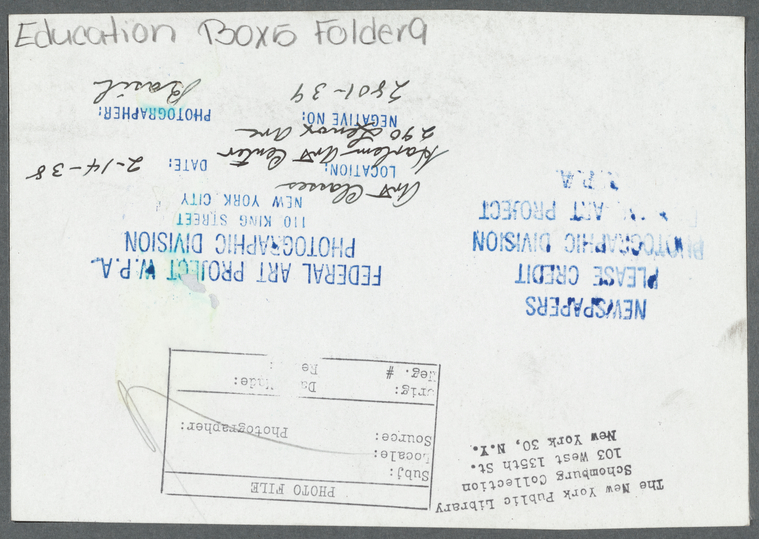 Education Box5 Folder9
The New York Public Library
Schomburg Collection
103 West 135th St.
New York 30, N.Y.
PHOTO FILE
Subj:
Locale:
Source:
Photographer:
Orig:
Neg. #
NEWSPAPERS
PLEASE CREDIT
PHOTOGRAPHIC DIVISION
ART PROJECT
W.P.A.
FEDERAL ART PROJECT W.P.A.
PHOTOGRAPHIC DIVISION
110 KING STREET
NEW YORK CITY
Art Classes
LOCATION: DATE: 2-14-38
Harlem Art Center
290 Lenox Ave
NEGATIVE NO: PHOTOGRAPHER:
2801-34 Basil